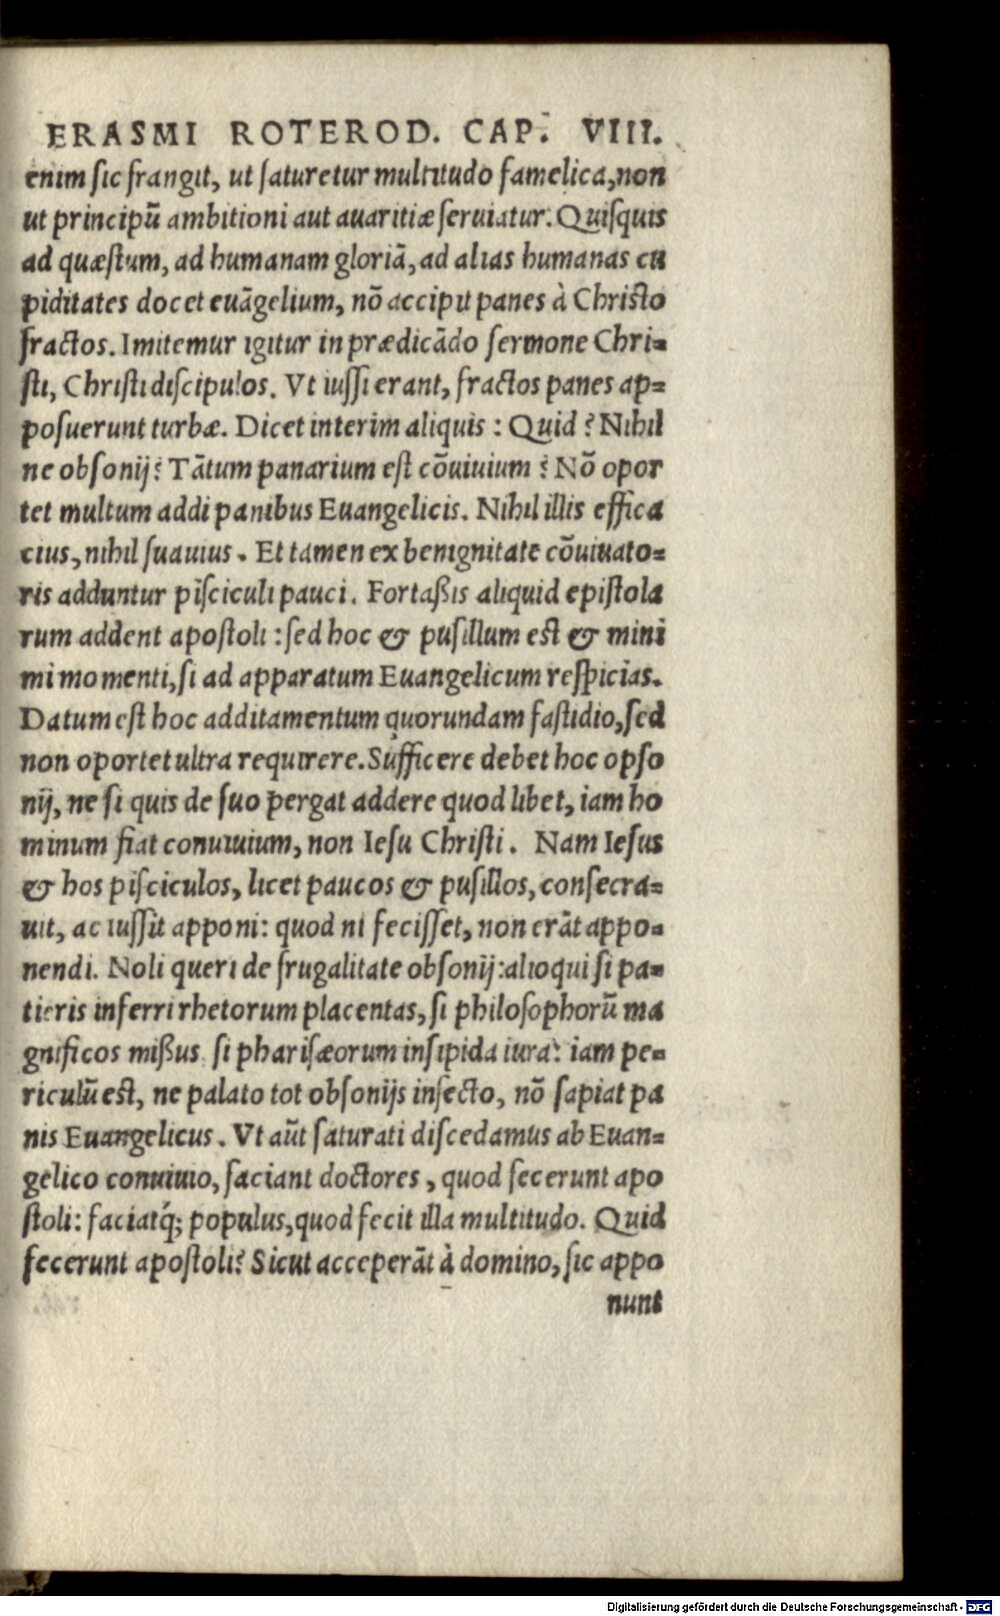 ERASMI ROTEROD. CAP. VIII.
enim sic frangit, ut saturetur multitudo famelica, non
ut principū ambitioni aut auaritiæ seruiatur. Quisquis
ad quæstum, ad humanam gloriā, ad alias humanas cu
piditates docet euāgelium, nō accipit panes à Christo
fractos. Imitemur igitur in prædicādo sermone Chri=
sti, Christi discipulos. Vt iussi erant, fractos panes ap=
posuerunt turbæ. Dicet interim aliquis : Quid ? Nihil
ne obsonij? Tātum panarium est cōuiuium ? Nō opor
tet multum addi panibus Euangelicis. Nihil illis effica
cius, nihil suauius. Et tamen ex benignitate cōuiuato=
ris adduntur pisciculi pauci. Fortaßis aliquid epistola
rum addent apostoli : sed hoc & pusillum est & mini
mi momenti, si ad apparatum Euangelicum respicias.
Datum est hoc additamentum quorundam fastidio, sed
non oportet ultra requirere. Sufficere debet hoc opso
nij, ne si quis de suo pergat addere quod libet, iam ho
minum fiat conuiuium, non Iesu Christi. Nam Iesus
& hos pisciculos, licet paucos & pusillos, consecra=
uit, ac iussit apponi: quod ni fecisset, non erāt appo=
nendi. Noli queri de frugalitate obsonij: alioqui si pa=
tieris inferri rhetorum placentas, si philosophorū ma
gnificos mißus si pharisæorum insipida iura: iam pe=
riculū est, ne palato tot obsonijs infecto, nō sapiat pa
nis Euangelicus. Vt aūt saturati discedamus ab Euan=
gelico conuiuio, faciant doctores, quod fecerunt apo
stoli: faciatq́; populus, quod fecit illa multitudo. Quid
fecerunt apostoli? Sicut acceperāt à domino, sic appo
nunt
Digitalisierung gefördert durch die Deutsche Forschungsgemeinschaft - DFG